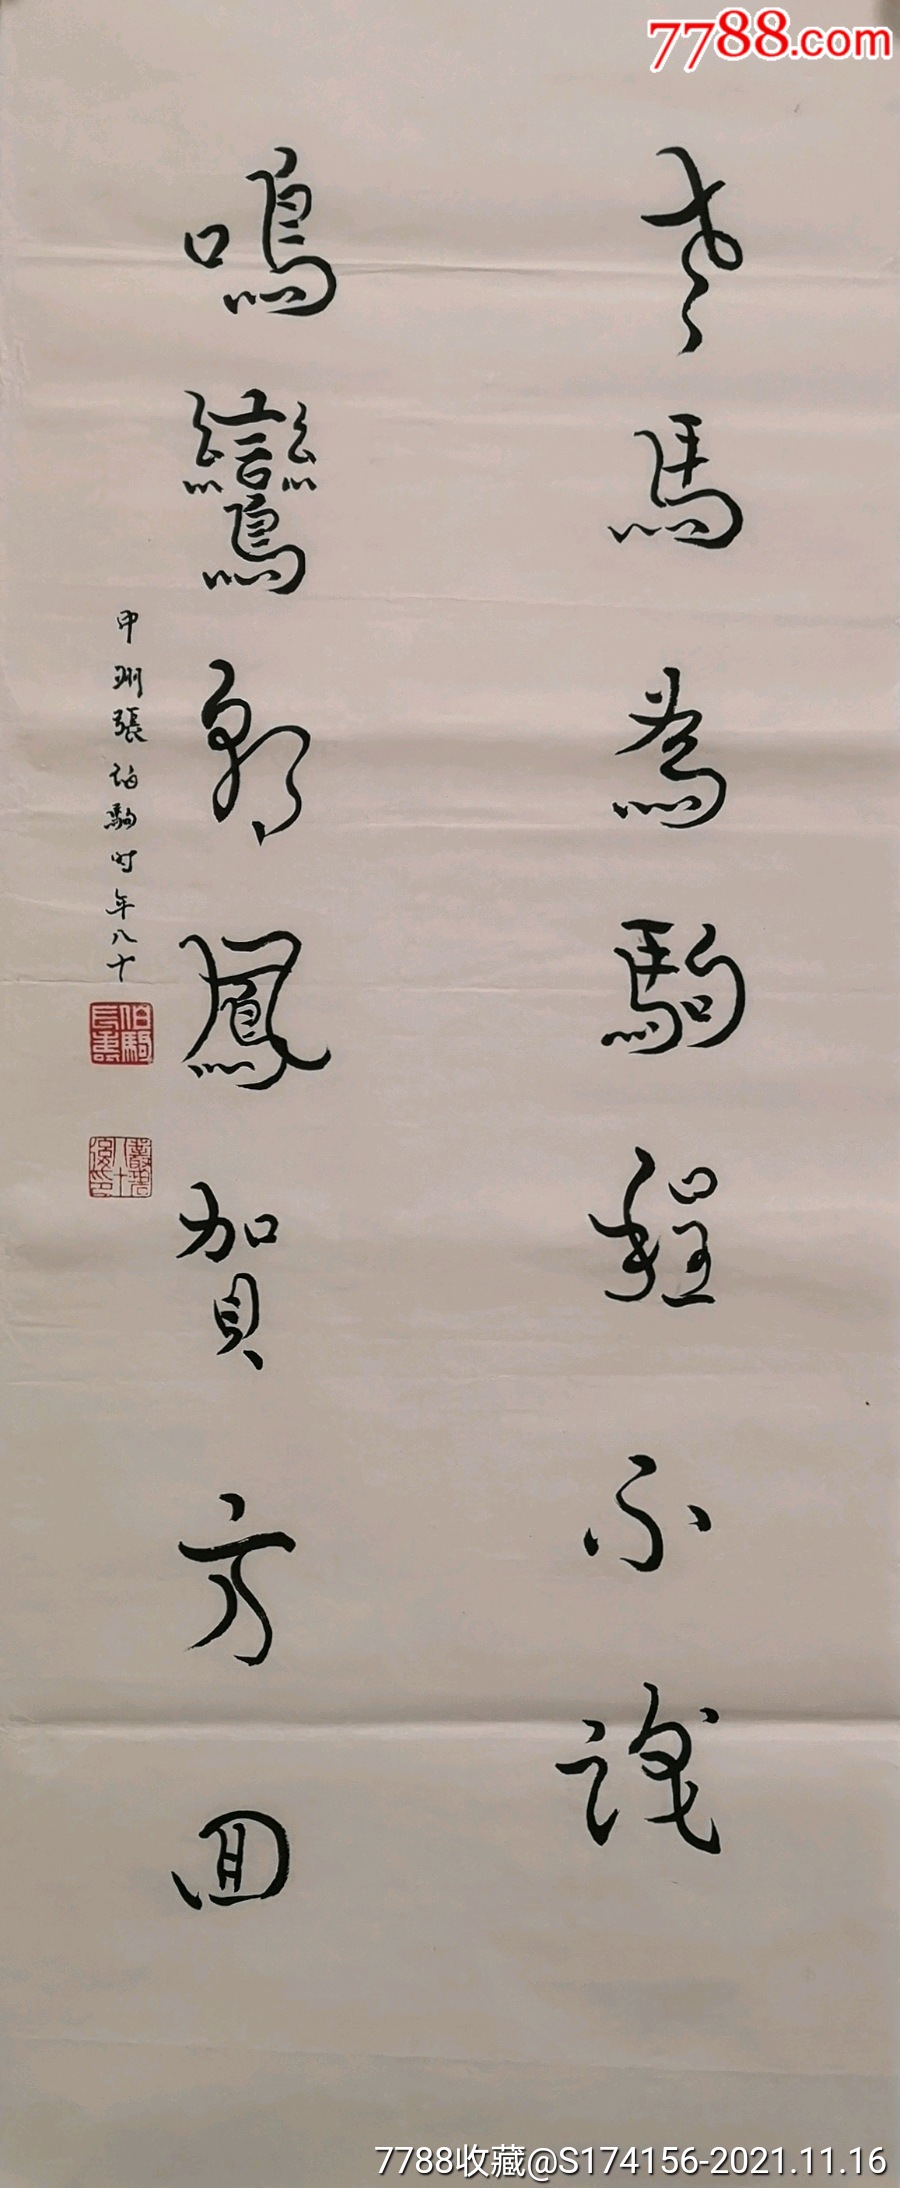 7788.com
老馬為駒程不識
鳴鸞朝鳳賀方回
中州張伯駒時年八十
伯駒長壽
叢碧八十後印
7788收藏@S174156-2021.11.16